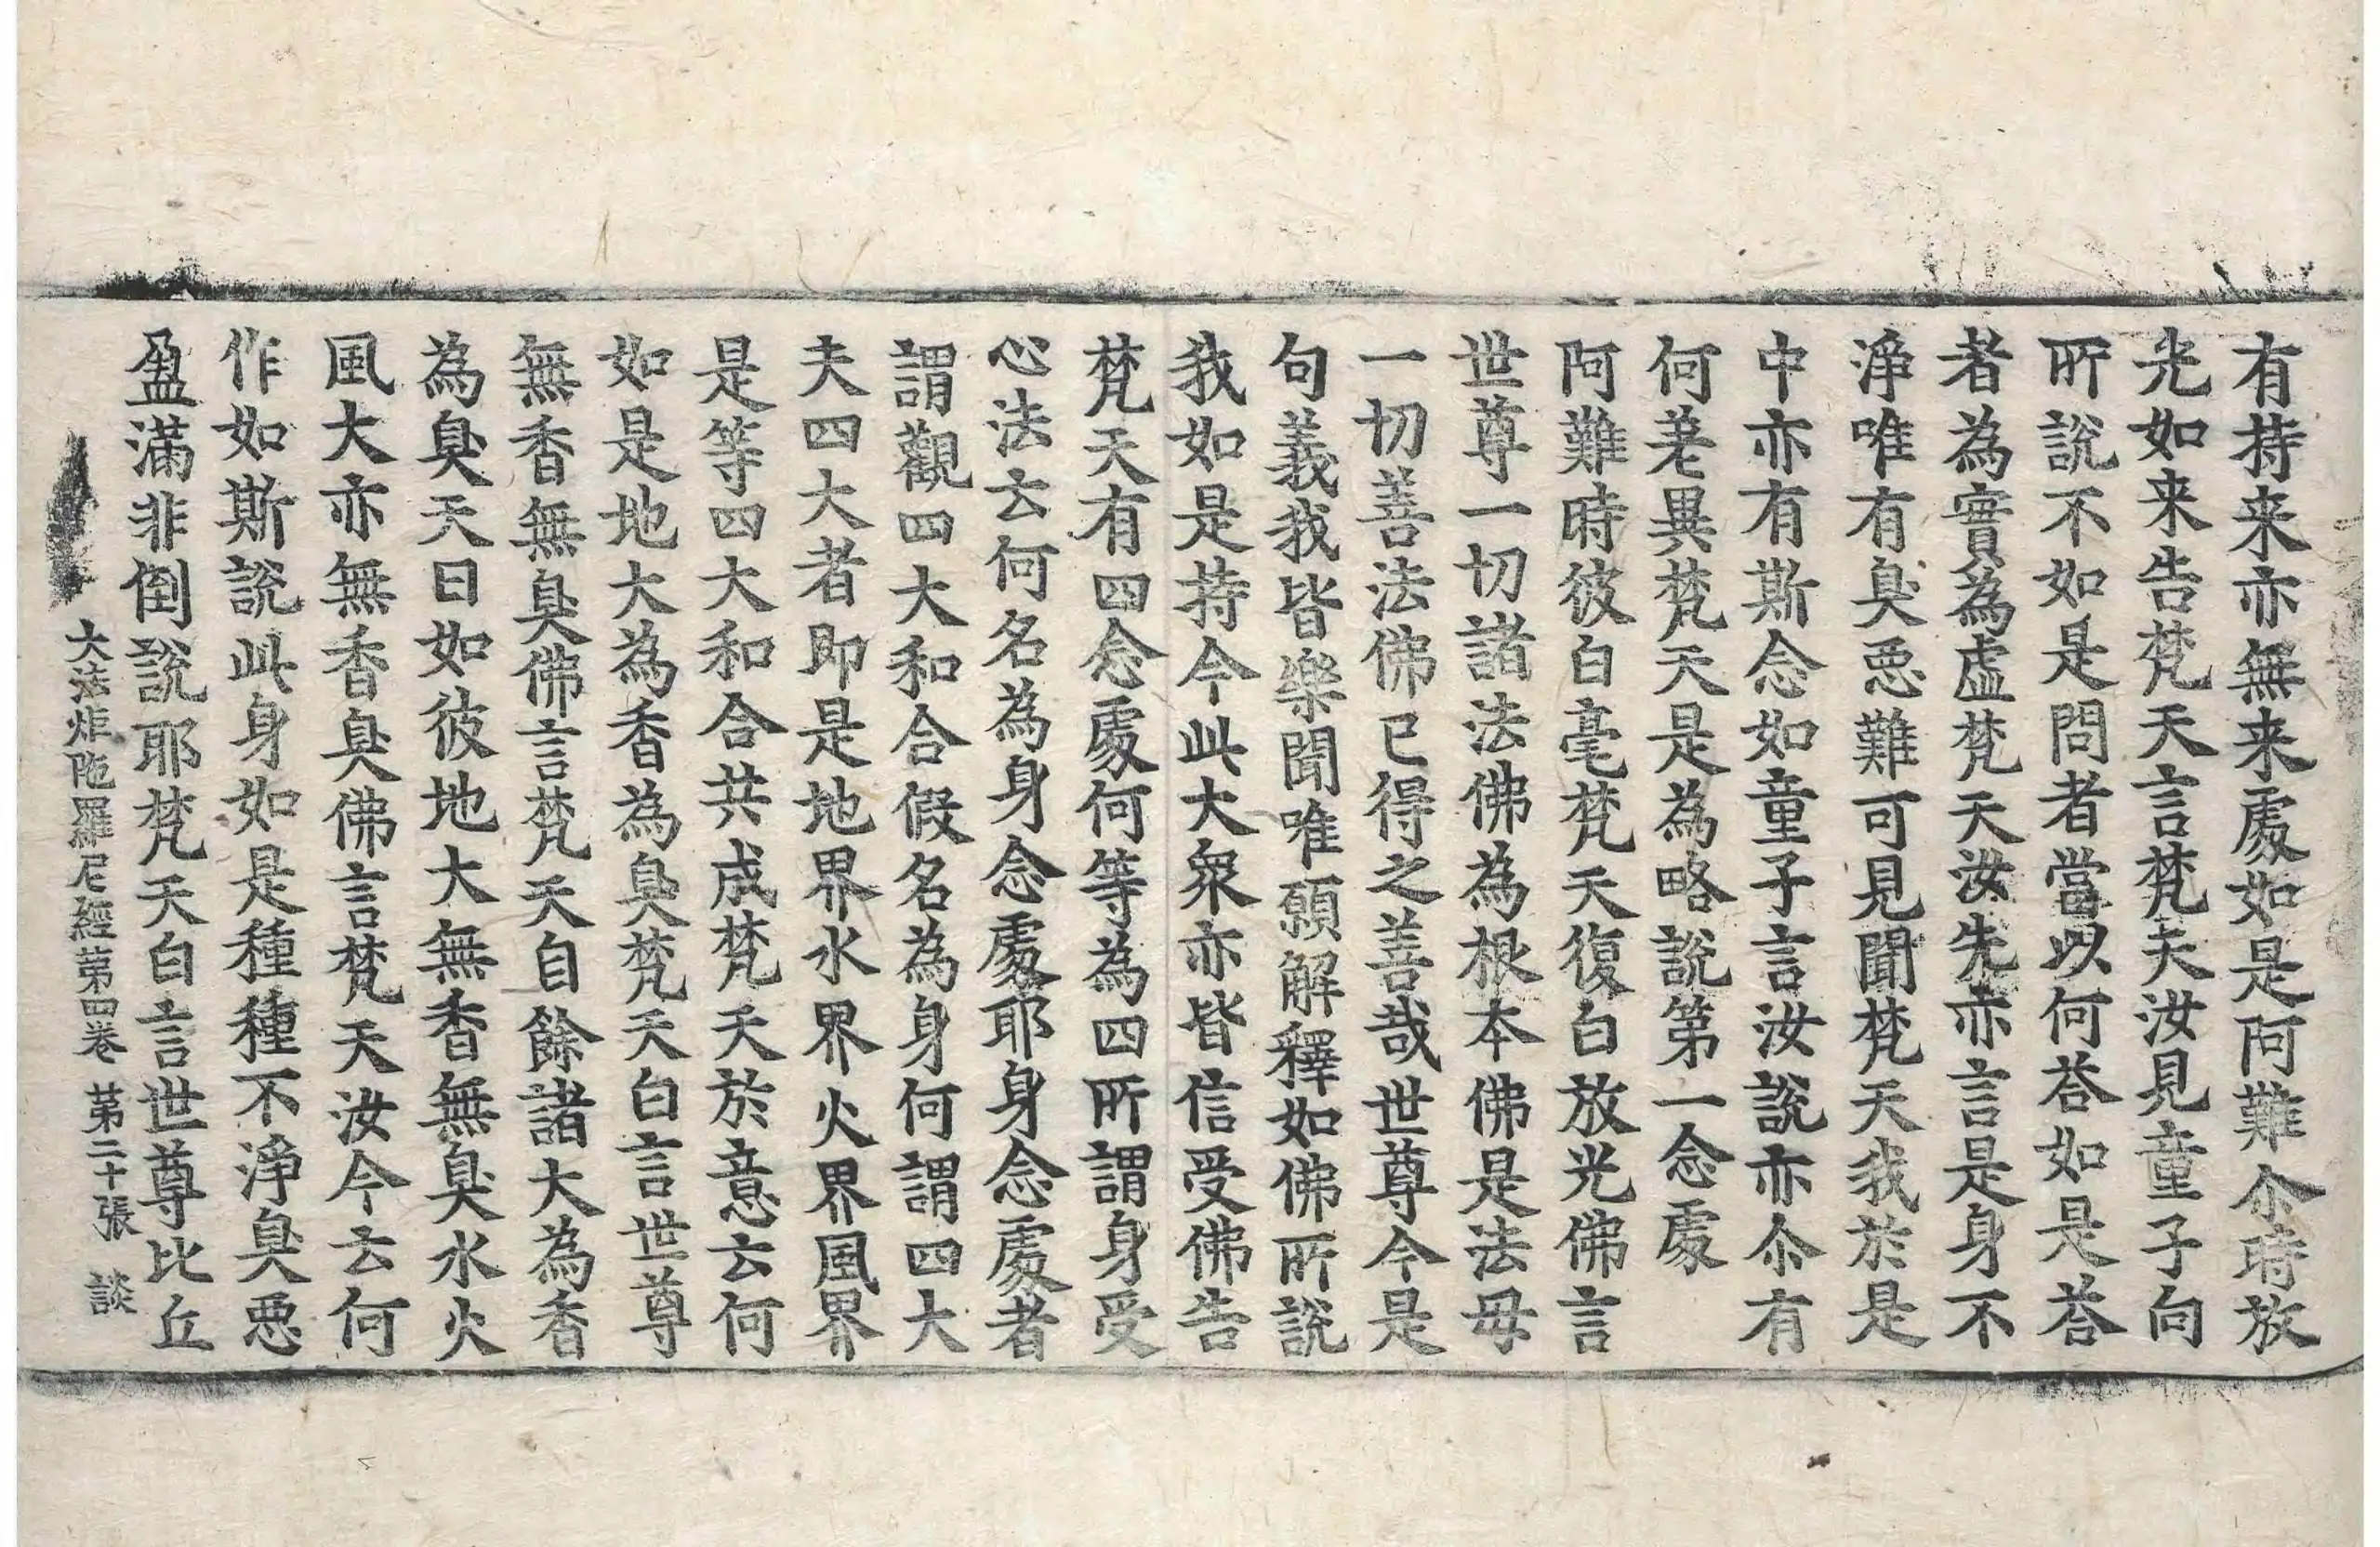 有持来亦無来處如是阿難尒時放
光如来告梵天言梵天汝見童子向
所說不如是問者當以何荅如是荅
者為實為虛梵天汝先亦言是身不
淨唯有臭惡難可見聞梵天我於是
中亦有斯念如童子言汝說亦尒有
何差異梵天是為略說第一念處
阿難時彼白毫梵天復白放光佛言
世尊一切諸法佛為根本佛是法母
一切善法佛已得之善哉世尊今是
句義我皆樂聞唯願解釋如佛所說
我如是持今此大衆亦皆信受佛告
梵天有四念處何等為四所謂身受
心法云何名為身念處耶身念處者
謂觀四大和合假名為身何謂四大
夫四大者即是地界水界火界風界
是等四大和合共成梵天於意云何
如是地大為香為臭梵天白言世尊
無香無臭佛言梵天自餘諸大為香
為臭天曰如彼地大無香無臭水火
風大亦無香臭佛言梵天汝今云何
作如斯說此身如是種種不淨臭惡
盈滿非倒說耶梵天白言世尊比丘
大法炬陁羅尼經第四卷 第二十張 談